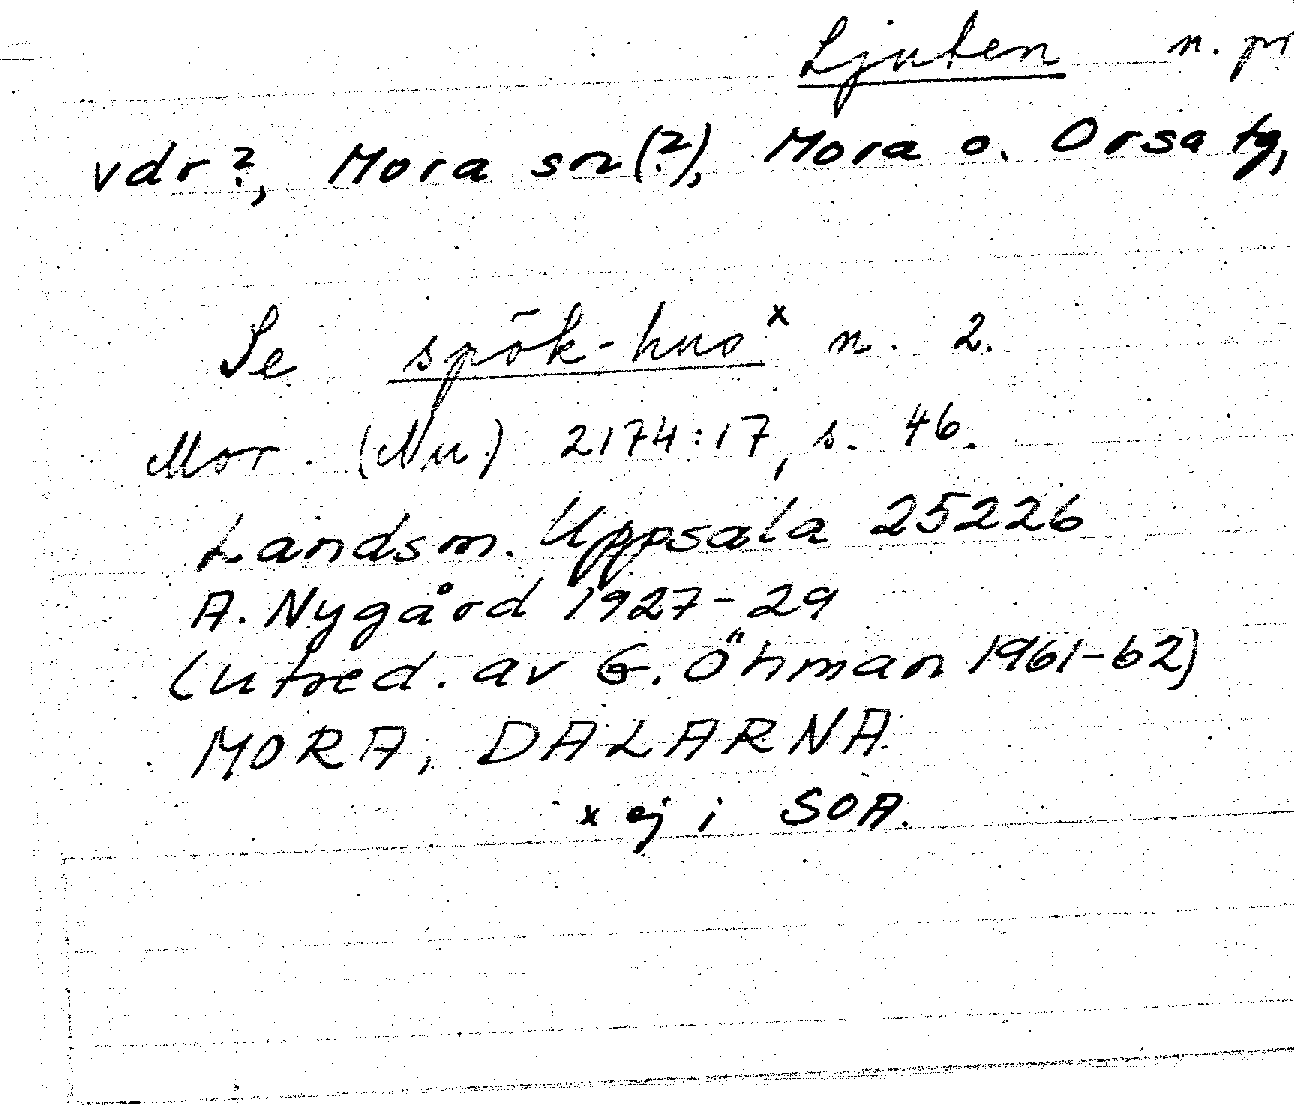 Ljuten n. pr
vdr?, Mora sn(?), Mora o. Orsa tg,
Se spök-hus x n. 2.
Mor. (Nu.) 2174:17, s. 46.
Landsm. Uppsala 25226
A. Nygård 1927-29
(utred. av G. Öhman 1961-62)
MORA, DALARNA
x ej i SOA.